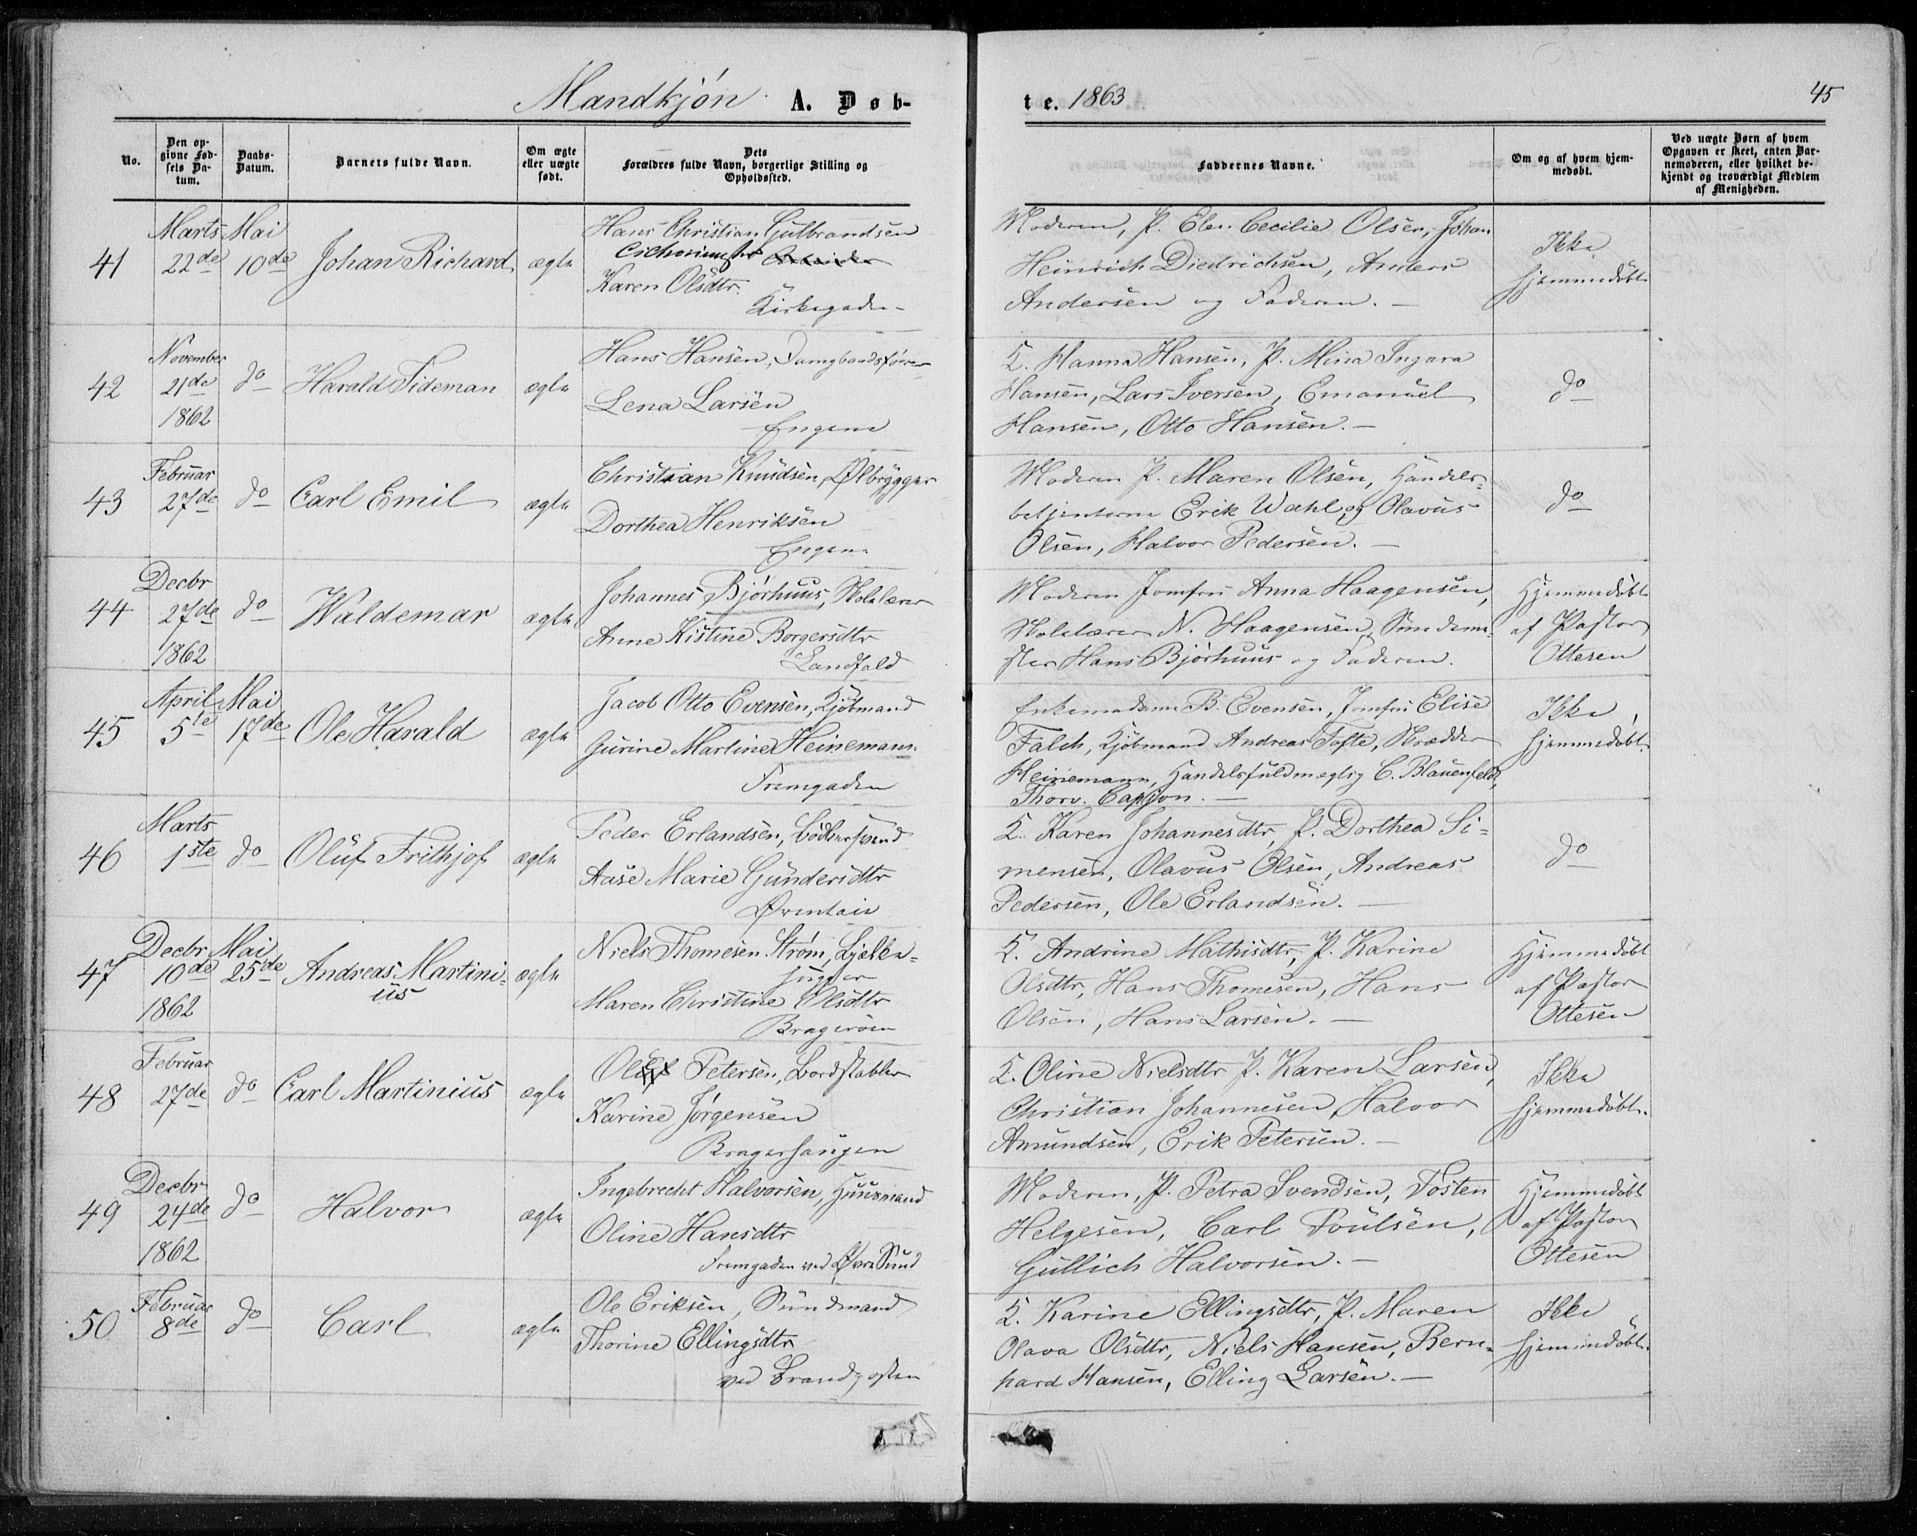 Mandkjøn A. Døb-
te. 1863
45
No.
Den op-
givne Fød-
sels Da-
tum.
Daabs-
Datum.
Barnets fulde Navn.
Om ægte
eller uægte
født.
Dets
Forældres fulde Navn, borgerlige Stilling og
Opholdssted.
Faddernes Navne.
Om og af hvem hjem-
medøbt.
Ved uægte Børn af hvem
Opgaven er skeet, enten Bar-
nemoderen, eller hvilket be-
kjendt og troværdigt Medlem
af Menigheden.
41
Marts
22de
Mai
10de
Johan Richard
ægte
Hans Christian Gulbrandsen
Karen Olsdtr.
Kirkegaden
Moderen, P. Elen Cecilie Olsen, Johan
Heinrich Diedrichsen, Anders
Andersen og Faderen. —
Ikke
hjemmedøbt
42
November
21de
1862
do
Harald Tideman
ægte
Hans Hansen, Dampbaadsfører
Lena Larsen
Engene
K. Hanna Hansen, P. Mina Ingara
Hansen, Lars Iversen, Emanuel
Hansen, Otto Hansen. —
do
43
Februar
27de
do
Carl Emil
ægte
Christian Knudsen, Ølbrygger
Dorthea Henriksen
Engene
Moderen P. Maren Olsen, Handels-
betjenterne Erik Wahl og Olavus
Olsen, Halvor Pedersen. —
do
44
Decbr
27de
1862
do
Waldemar
ægte
Johannes Bjørhuus, Skolelærer
Anne Kistine Borgersdtr
Landfald
Moderen Jomfru Anna Haagensen,
Skolelærer N. Haagensen,
Hans Bjørhuus og Faderen.
Hjemmedøbt
af Pastor
Ottesen
45
April
5te
Mai
17de
Ole Harald
ægte
Jacob Otto Evensen, Kjøbmand
Gurine Martine Heinemann
Fremgaden
Enkemadame B. Evensen, Jomfru Elise
Falch, Kjøbmand Andreas Tofte, Skrædder
Heinemann, Handelsfuldmægtig C. Blauenfeldt,
Thorv.
Ikke
hjemmedøbt.
46
Marts
1ste
do
Oluf Frithjof
ægte
Peder Erlandsen, Bødkersvend
Aase Marie Gundersdtr
K. Karen Johannesdtr, P. Dorthea Si-
mensen, Olavus Olsen, Andreas
Pedersen, Ole Erlandsen. —
do
47
Decbr
10de
1862
Mai
25de
Andreas Martini-
us
ægte
Niels Thomesen Strøm,
Maren Christine Olsdtr
Bragerøen
K. Andrine Mathisdtr, P. Karine
Olsdtr, Hans Thomesen, Hans
Olsen, Hans Larsen. —
Hjemmedøbt
af Pastor
Ottesen
48
Februar
27de
do
Carl Martinius
ægte
Petersen, Bordstabler
Karine Jørgensen
Bragerhaugen
K. Oline Nielsdtr P. Karen Larsen,
Christian Johannesen, Halvor
Amundsen, Erik Petersen. —
Ikke
hjemmedøbt.
49
Decbr
24de
1862
do
Halvor
ægte
Ingebrecht Halvorsen, Huusmand
Oline Hansdtr
Fremgaden ved Øvre Sund
Moderen, P. Petra Svendsen, Tosten
Helgesen, Carl Poulsen,
Gullich Halvorsen. —
Hjemmedøbt
af Pastor
Ottesen
50
Februar
8de
do
Carl
ægte
Ole Eriksen, Sundmand
Thorine Ellingsdtr
ved Brandposten
K. Karine Ellingsdtr, P. Maren
Olava Olsdtr, Niels Hansen, Bern-
hard Hansen, Elling Larsen. —
Ikke
hjemmedøbt.